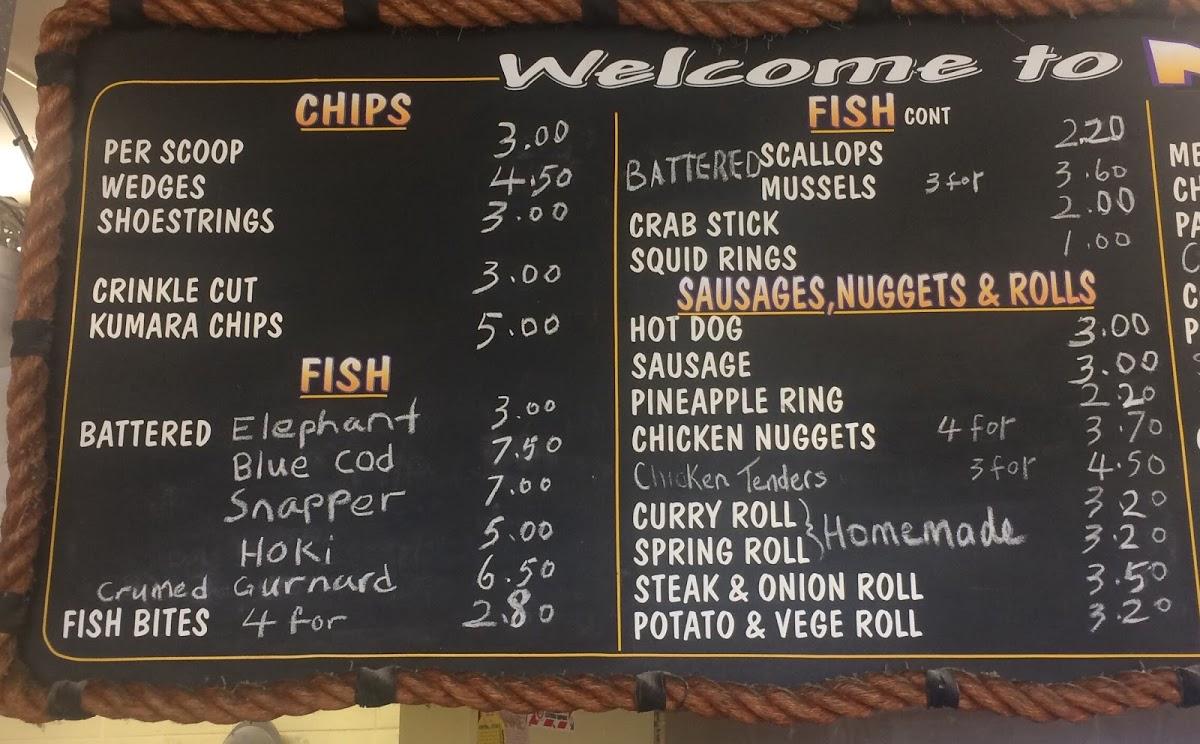 Welcome to
CHIPS
PER SCOOP 3.00
WEDGES 4.50
SHOESTRINGS 3.00
CRINKLE CUT 3.00
KUMARA CHIPS 5.00
FISH
BATTERED Elephant 3.00
Blue Cod 7.50
Snapper 7.00
Hoki 5.00
Crumed Gurnard 6.50
FISH BITES 4 for 2.80
FISH CONT
BATTERED SCALLOPS 2.20
MUSSELS 3 for 3.60
CRAB STICK 2.00
SQUID RINGS 1.00
SAUSAGES, NUGGETS & ROLLS
HOT DOG 3.00
SAUSAGE 3.00
PINEAPPLE RING 2.20
CHICKEN NUGGETS 4 for 3.70
Chicken Tenders 3 for 4.50
CURRY ROLL } Homemade 3.20
SPRING ROLL 3.20
STEAK & ONION ROLL 3.50
POTATO & VEGE ROLL 3.20